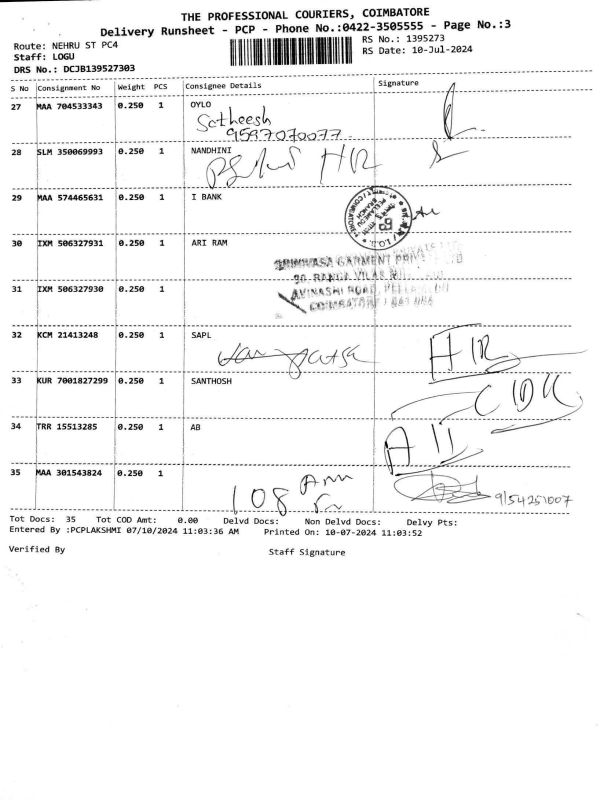 THE PROFESSIONAL COURIERS, COIMBATORE
Delivery Runsheet - PCP - Phone No.:0422-3505555 - Page No.:3
Route: NEHRU ST PC4
RS No.: 1395273
Staff: LOGU
RS Date: 10-Jul-2024
DRS No.: DCJB139527303
S No Consignment No Weight PCS Consignee Details Signature
27 MAA 704533343 0.250 1 OYLO
Satheesh
9597070077
28 SLM 350069993 0.250 1 NANDHINI
HR
29 MAA 574465631 0.250 1 I BANK
30 IXM 506327931 0.250 1 ARI RAM
SRINIVASA GARMENT
31 IXM 506327930 0.250 1
AVINASHI ROAD,
32 KCM 21413248 0.250 1 SAPL
33 KUR 7001827299 0.250 1 SANTHOSH
34 TRR 15513285 0.250 1 AB
35 MAA 301543824 0.250 1
108
9154251007
Tot Docs: 35 Tot COD Amt: 0.00 Delvd Docs: Non Delvd Docs: Delvy Pts:
Entered By :PCPLAKSHMI 07/10/2024 11:03:36 AM Printed On: 10-07-2024 11:03:52
Verified By
Staff Signature